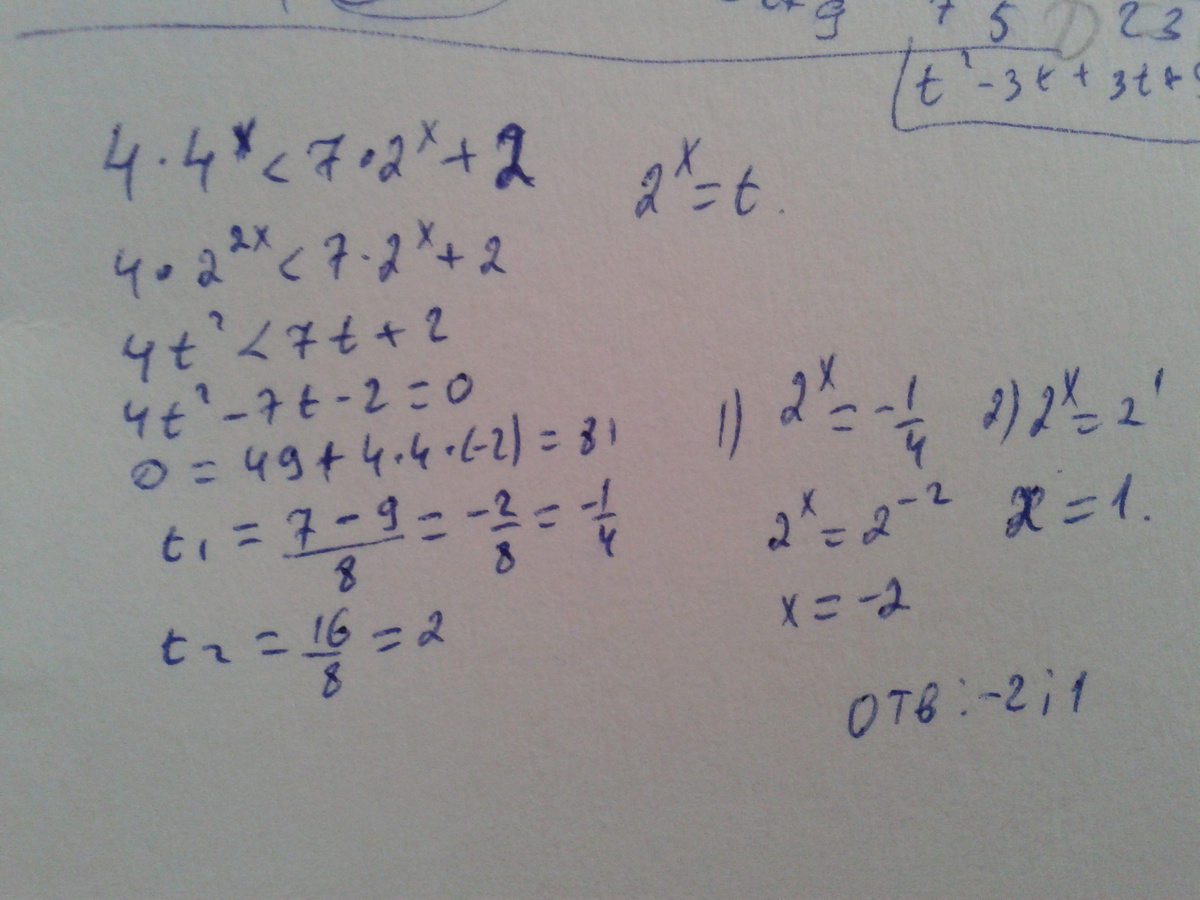 9 7 5 23
t² - 3t + 3t + 9
4 · 4ˣ < 7 · 2ˣ + 2
2ˣ = t.
4 · 2²ˣ < 7 · 2ˣ + 2
4t² < 7t + 2
4t² - 7t - 2 = 0
D = 49 + 4·4·(-2) = 81
t₁ = (7 - 9)/8 = -2/8 = -1/4
t₂ = 16/8 = 2
1) 2ˣ = -1/4 2) 2ˣ = 2¹
2ˣ = 2⁻² x = 1.
x = -2
отв: -2; 1